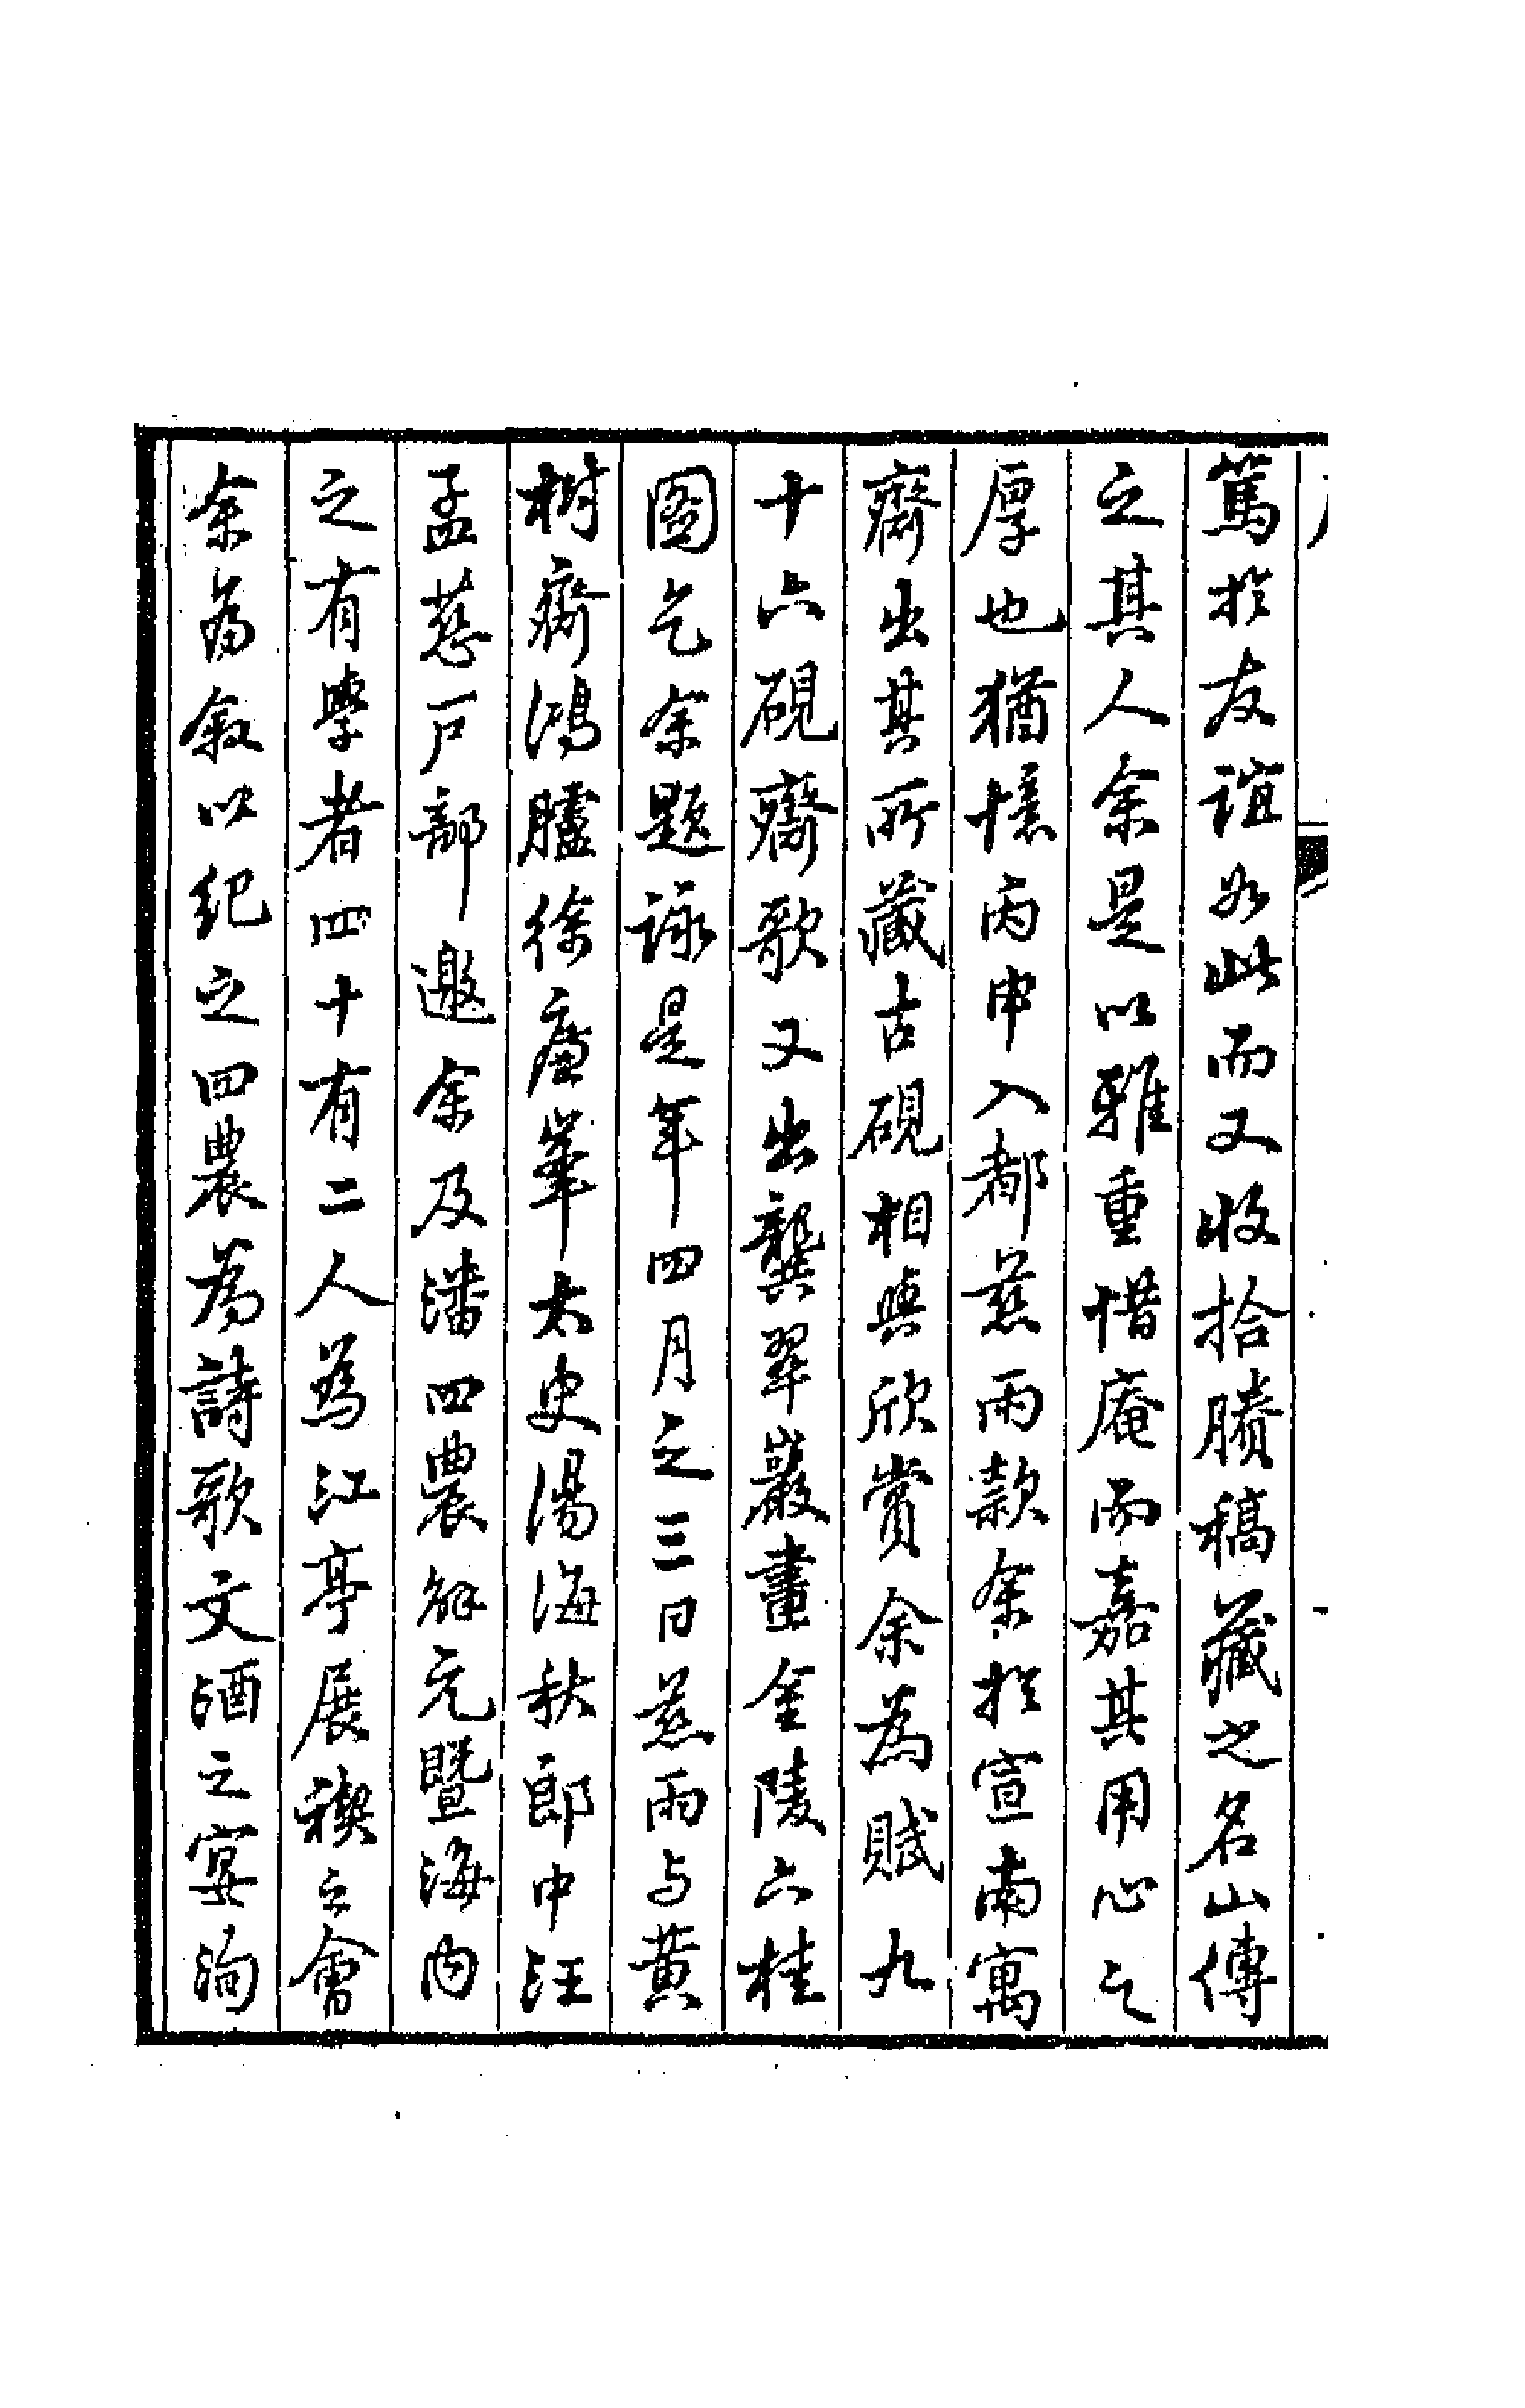 篤於友誼如此而又收拾賸稿藏之名山傳
之其人余是以雅重惜庵而嘉其用心之
厚也猶憶丙申入都慈雨款余於宣南寓
齋出其所藏古硯相與欣賞余為賦九
十六硯齋歌又出龔翠巖畫金陵六桂
圖乞余題詠是年四月之三日慈雨与黃
樹齋鴻臚徐廉峯太史湯海秋郎中汪
孟慈戶部邀余及潘四農解元暨海內
之有學者四十有二人為江亭展禊之會
余為敘以紀之四農為詩歌文酒之宴洵